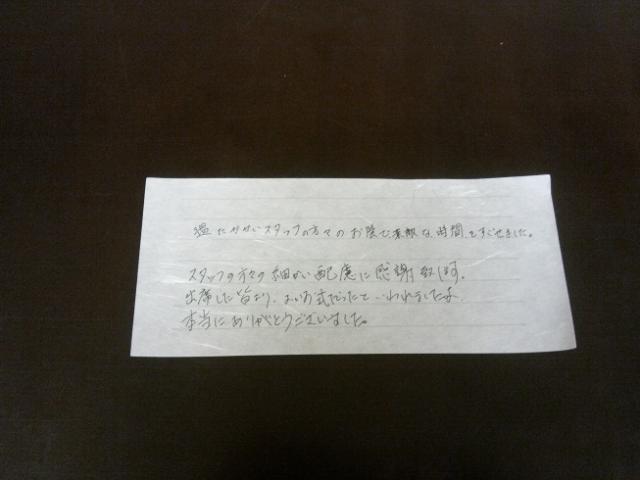 温たかいスタッフの方々のお陰で素敵な時間をすごせました。
スタッフの方々の細かい配慮に感謝致します。
出席した皆より、よいお式だったと いわれましたよ
本当にありがとうございました。